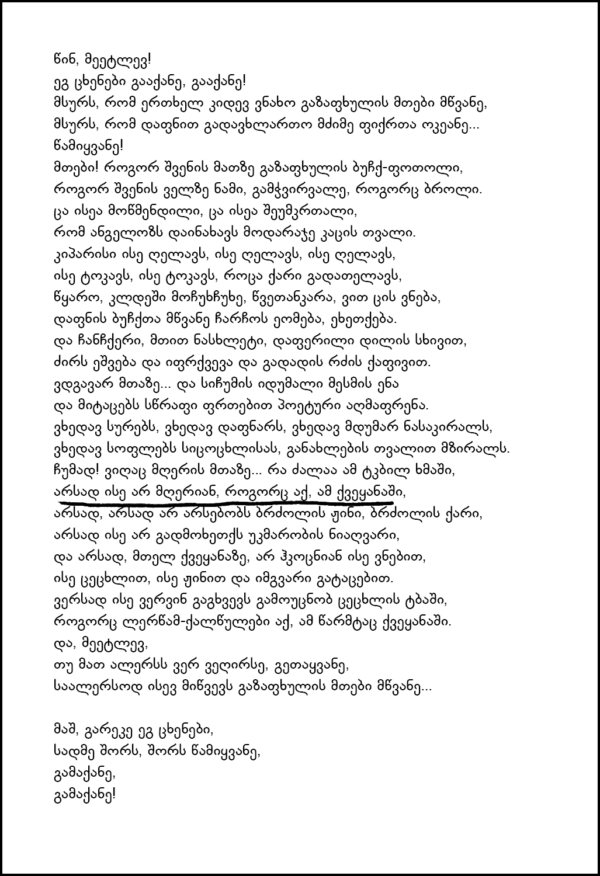 წინ, მეეტლევ!
ეგ ცხენები გააქანე, გააქანე!
მსურს, რომ ერთხელ კიდევ ვნახო გაზაფხულის მთები მწვანე,
მსურს, რომ დაფნით გადავხლართო მძიმე ფიქრთა ოკეანე...
წამიყვანე!
მთები! როგორ შვენის მათზე გაზაფხულის ბუჩქ-ფოთოლი,
როგორ შვენის ველზე ნამი, გამჭვირვალე, როგორც ბროლი.
ცა ისეა მოწმენდილი, ცა ისეა შეუმკრთალი,
რომ ანგელოზს დაინახავს მოდარაჯე კაცის თვალი.
კიპარისი ისე ღელავს, ისე ღელავს, ისე ღელავს,
ისე ტოკავს, ისე ტოკავს, როცა ქარი გადათელავს,
წყარო, კლდეში მოჩუხჩუხე, წვეთანკარა, ვით ცის ვნება,
დაფნის ბუჩქთა მწვანე ჩარჩოს ეომება, ეხეთქება.
და ჩანჩქერი, მთით ნასხლეტი, დაფერილი დილის სხივით,
ძირს ეშვება და იფრქვევა და გადადის რძის ქაფივით.
ვდგავარ მთაზე... და სიჩუმის იდუმალი მესმის ენა
და მიტაცებს სწრაფი ფრთებით პოეტური აღმაფრენა.
ვხედავ სურებს, ვხედავ დაფნარს, ვხედავ მდუმარ ნასაკირალს,
ვხედავ სოფლებს სიცოცხლისას, განახლების თვალით მზირალს.
ჩუმად! ვიღაც მღერის მთაზე... რა ძალაა ამ ტკბილ ხმაში,
არსად ისე არ მღერიან, როგორც აქ, ამ ქვეყანაში,
არსად, არსად არ არსებობს ბრძოლის ჟინი, ბრძოლის ქარი,
არსად ისე არ გადმოხეთქს უკმარობის ნიაღვარი,
და არსად, მთელ ქვეყანაზე, არ ჰკოცნიან ისე ვნებით,
ისე ცეცხლით, ისე ჟინით და იმგვარი გატაცებით.
ვერსად ისე ვერვინ გაგხვევს გამოუცნობ ცეცხლის ტბაში,
როგორც ლერწამ-ქალწულები აქ, ამ წარმტაც ქვეყანაში.
და, მეეტლევ,
თუ მათ ალერსს ვერ ვეღირსე, გეთაყვანე,
საალერსოდ ისევ მიწვევს გაზაფხულის მთები მწვანე...
მაშ, გარეკე ეგ ცხენები,
სადმე შორს, შორს წამიყვანე,
გამაქანე,
გამაქანე!